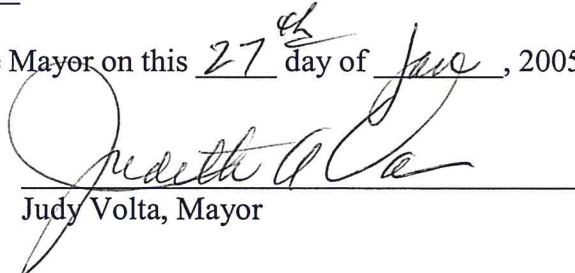 Mayor on this 27th day of June, 2005
Judith A Vo
Judy Volta, Mayor